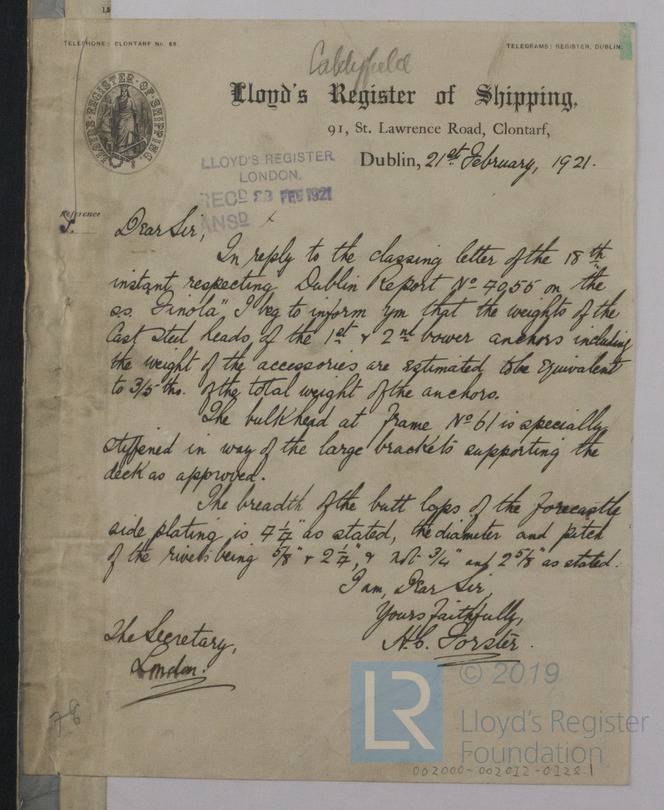 TELEPHONE: CLONTARF No. 69.
TELEGRAMS: REGISTER, DUBLIN.
Lloyd's Register of Shipping,
LLOYD'S REGISTER OF SHIPPING
91, St. Lawrence Road, Clontarf,
Dublin, 21st February, 1921.
LLOYD'S REGISTER
LONDON.
RECD 23 FEB 1921
ANSD
Reference
Dear Sir,
In reply to the classing letter of the 18th
instant respecting Dublin Report No 4055 on the
s.s. "Finola", I beg to inform you that the weights of the
Cast Steel heads, of the 1st & 2nd bower anchors including
the weight of the accessories are estimated to be equivalent
to 3/5 ths. of the total weight of the anchors.
The bulkhead at Frame No 61 is specially
stiffened in way of the large brackets supporting the
deck as approved.
The breadth of the butt laps of the forecastle
side plating is 4 1/4" as stated, the diameter and pitch
of the rivets being 5/8" & 2 1/4", & not 3/4" and 2 5/8" as stated.
I am, Dear Sir,
Yours Faithfully,
H.C. Forster.
The Secretary,
London.
78
© 2019
LR
Lloyd's Register
Foundation
002000-002012-0128.1